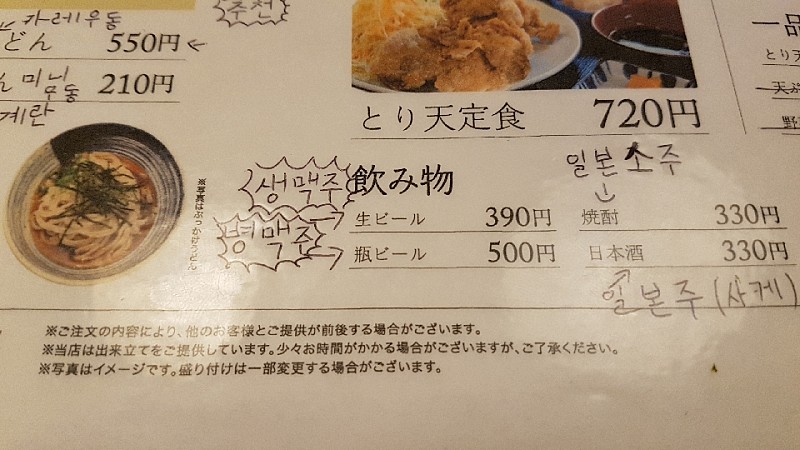 추천
카레우동
どん 550円
미니우동 210円
계란
とり天定食 720円
一品
とり天
天ぷ
野
※写真はぶっかけうどん
생맥주
飲み物
일본 소주
生ビール 390円
焼酎 330円
병맥주
瓶ビール 500円
日本酒 330円
일본주 (사케)
※ご注文の内容により、他のお客様とご提供が前後する場合がございます。
※当店は出来立てをご提供しています。少々お時間がかかる場合がございますが、ご了承ください。
※写真はイメージです。盛り付けは一部変更する場合がございます。